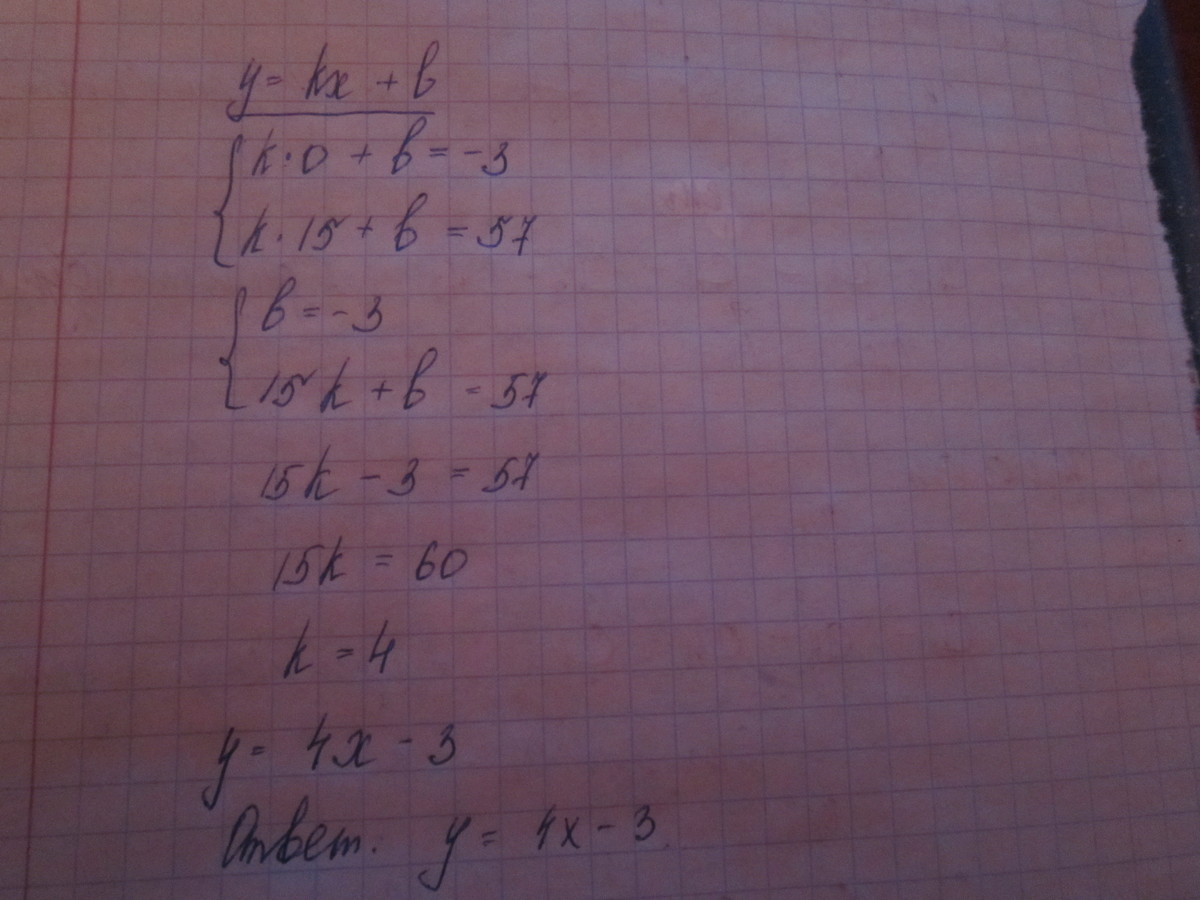 y = kx + b
k·0 + b = -3
k·15 + b = 57
b = -3
15k + b = 57
15k - 3 = 57
15k = 60
k = 4
y = 4x - 3
Ответ. y = 4x - 3